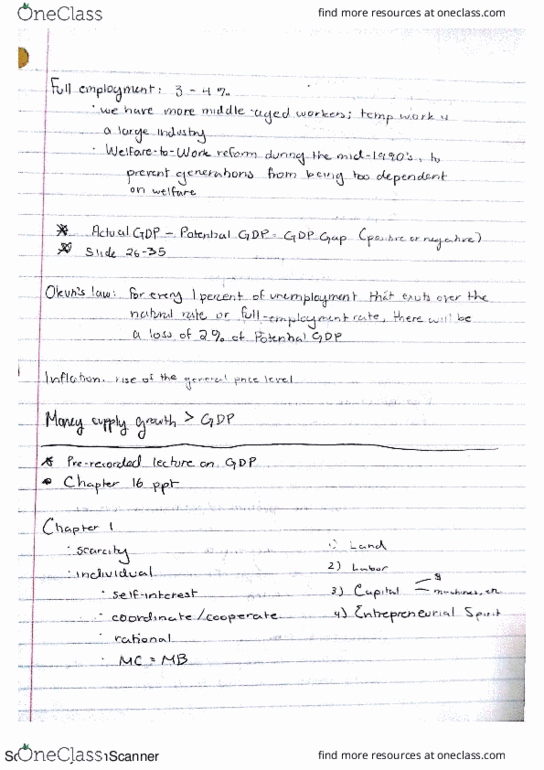 OneClass
find more resources at oneclass.com
Full employment: 3 - 4 %
· we have more middle-aged workers; temp work is
a large industry
· Welfare-to-Work reform during the mid-1990's, to
prevent generations from being too dependent
on welfare
* Actual GDP - Potential GDP = GDP Gap (positive or negative)
* Slide 26-35
Okun's law: for every 1 percent of unemployment that exists over the
natural rate or full-employment rate, there will be
a loss of 2% of Potential GDP
Inflation. rise of the general price level
Money supply growth > GDP
* Pre-recorded lecture on GDP
* Chapter 16 ppt
Chapter 1
· scarcity
· individual
· self-interest
· coordinate/cooperate
· rational
· MC = MB
1) Land
2) Labor
3) Capital
$
machines, etc
4) Entrepreneurial Spirit
OneClass
Scanner
find more resources at oneclass.com